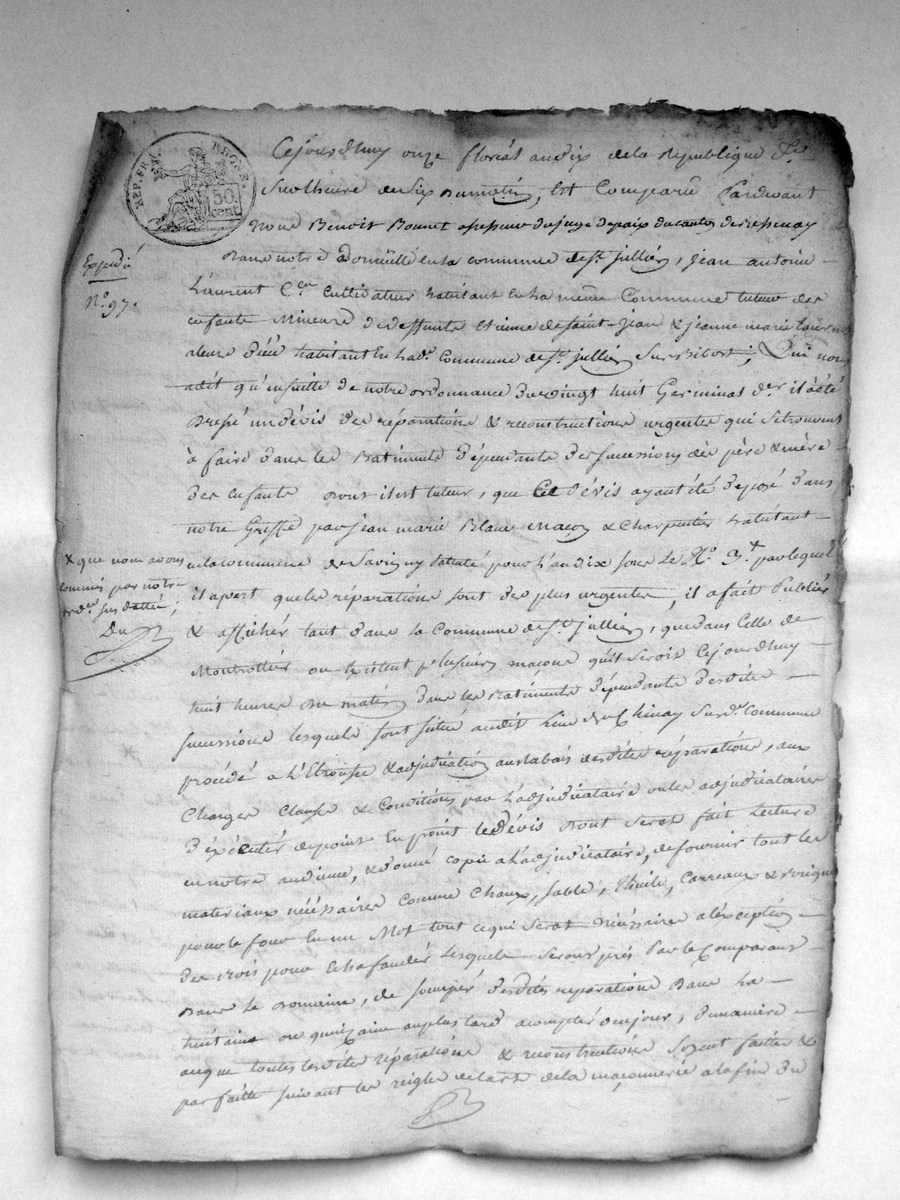 REP. FRA. RHONE.
50 cent
Cejourdhuy onze floréal an dix de la Republique
Sur lheure de Six du matin, Est Comparu Pardevant
Nous Benoit Bonnet assesseur du juge de paix du canton de Bessenay
Dans notre domicille en la commune de St. jullien, jean antoine
Laurent cultivateur habitant en la même Commune tuteur des
enfants Mineurs de deffunts Etienne de Saint-jean & jeanne marie
habitant En lad. Commune de St. jullien Sur Bibost, Qui nous
adit qu'ensuitte de notre ordonnance du vingt huit Germinal der. il a été
Dressé un dévis des réparations & reconstructions urgentes qui Setrouvent
à faire dans les Batiments dépendants des successions des père & mère
des enfants dont il est tuteur, que Ce dévis ayant été déposé dans
notre Greffe par jean marie Blanc Maçon & Charpentier habitant
en la commune de Savigny patenté pour l'an dix sous le No. 3. + par lequel
il apert que les réparations sont des plus urgentes, il a fait Publier
& afficher tant dans la Commune de St. jullien, que dans Celle de
Montrottier ou Existent plusieurs maçons qu'il Seroit Cejourdhuy
huit heures du matin dans les Batiments dépendants desdites
successions lesquels sont situé audit Lieu de Chinay Susd. Commune
procédé a L'Etrousse & adjudication au rabais desdites réparations, aux
Charges Clauses & Conditions par L'adjudicataire ou les adjudicataires
d'éxécuter de point En point le dévis dont Serat fait Lecture
en notre audience, & donné copie a L'adjudicataire, de fournir tout les
materiaux nécéssaires comme Chaux, sable, Thuile, Carreaux & briques
pour le four En un Mot tout ce qui Serat nécéssaire a l'exception
des bois pour Echafauder lesquels Seront pris Par le Comparant
Dans le Domaine, de desdites reparations Dans La
huitaine ou quinzaine au plus tard acompter de cejour, de manière
aceque toutes lesdites réparations & reconstructions Soyent faittes &
parfaitte suivant les reigles de l'art de la maçonnerie a la fin du
Expedié
No. 97.
X que nous avons
commis par notre
ord.ce sus dattée;